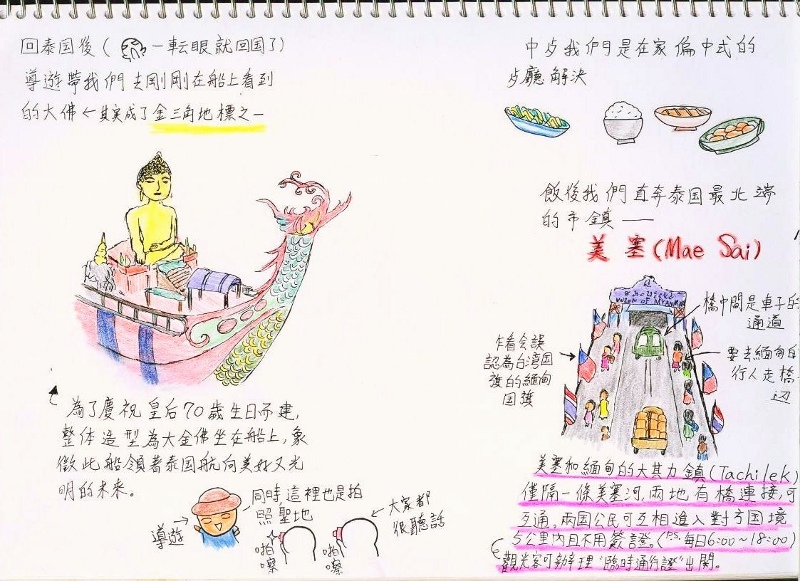 回泰国後(一転眼就回国了)
導遊帶我們去剛剛在船上看到
的大佛←其実成了金三角地標之一
為了慶祝皇后70歳生日而建,
整体造型為大金佛坐在船上,象
徵此船領著泰国航向美好又光
明的未来。
導遊
同時這裡也是拍
照聖地
大家都
很聽話
啪嚓
啪嚓
中歺我們是在家偏中式的
歺廳解決
飯後我們直奔泰国最北端
的市鎮——
美塞(Mae Sai)
UNION OF MYANMAR
橋中間是車子的
通道
乍看会誤
認為台湾国
旗的緬甸
国旗
要去緬甸的
行人走橋
辺
美塞和緬甸的大其力鎮(Tachilek)
僅隔一條美塞河,兩地有橋連接,可
互通,兩国公民可互相進入對方国境
5公里內且不用簽證。(P.S.每日6:00~18:00)
觀光客可辦理"臨時通行證"出関。